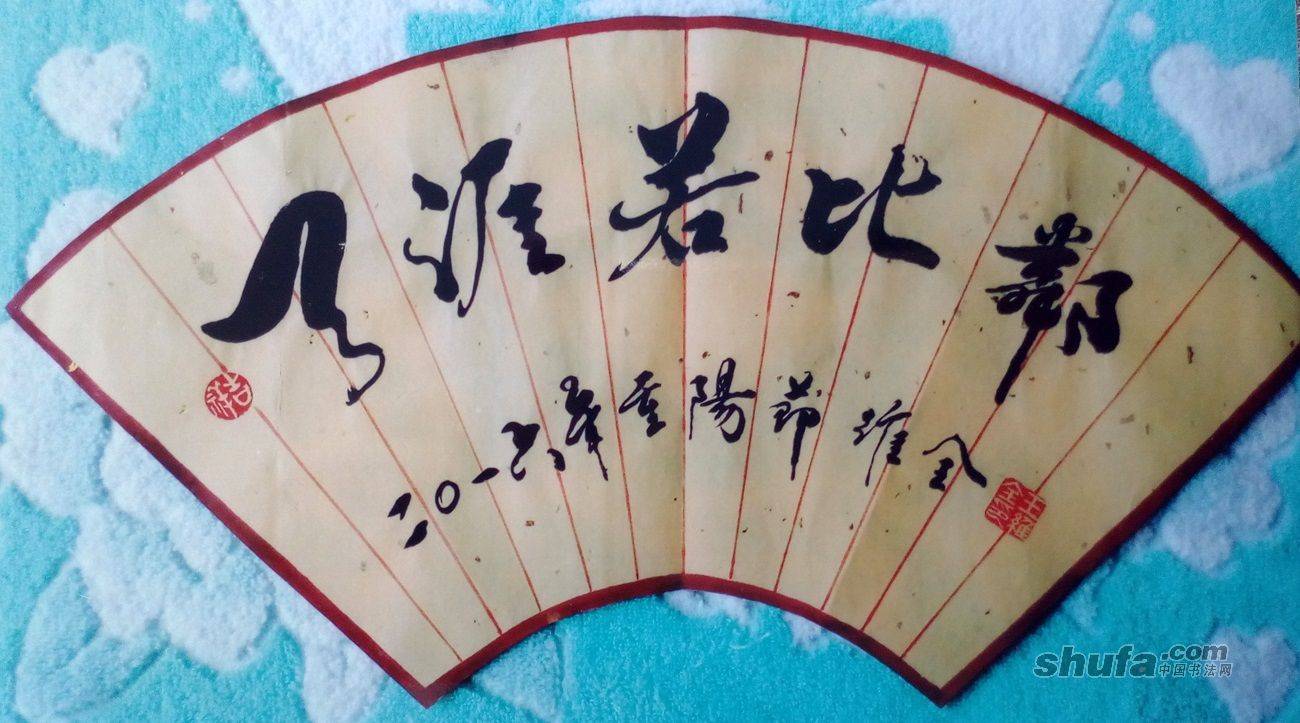 天涯若比鄰
二〇一六年重陽節維全
shufa.com
中国书法网